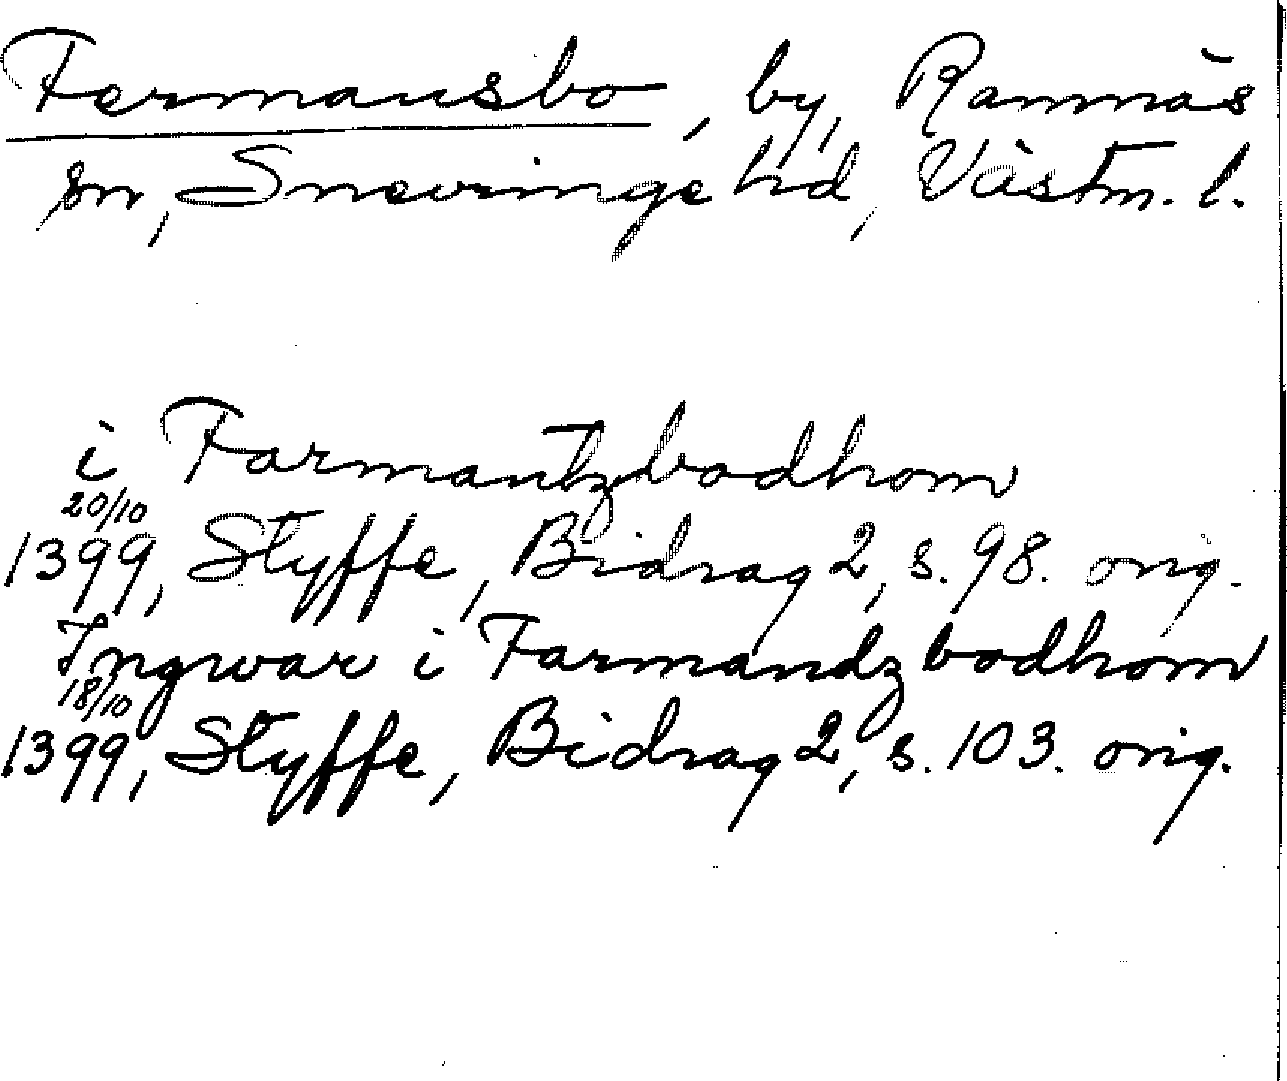 Fermansbo, by, Ramnäs
sn, Snevringe hd, Västm. l.
i Farmantzbodhom
20/10
1399, Styffe, Bidrag 2, s. 98. orig.
Ingwar i Farmandzbodhom
18/10
1399, Styffe, Bidrag 2, s. 103. orig.